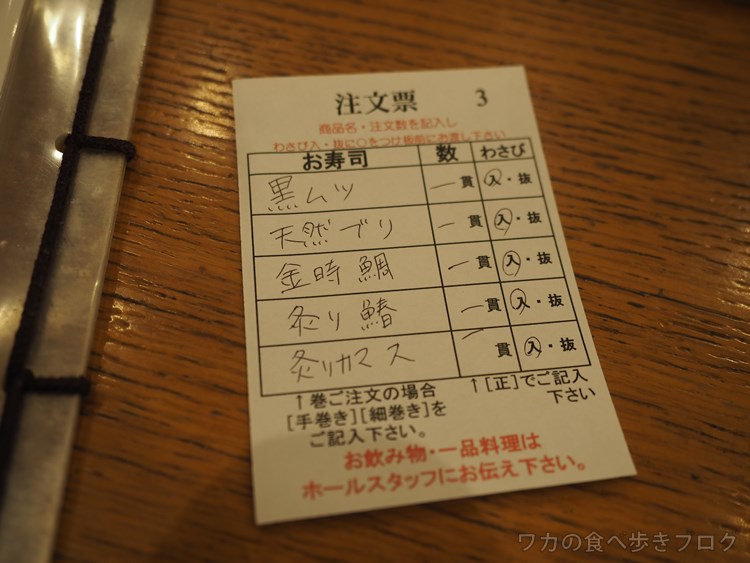 注文票 3
商品名・注文数を記入し
わさび入・抜に○をつけ板前にお渡し下さい
お寿司 数 わさび
黒ムツ 一貫 入・抜
天然ブリ 一貫 入・抜
金時鯛 一貫 入・抜
炙り鰆 一貫 入・抜
炙りカマス 一貫 入・抜
↑巻ご注文の場合
[手巻き][細巻き]を
ご記入下さい。
↑[正]でご記入
下さい
お飲み物・一品料理は
ホールスタッフにお伝え下さい。
ワカの食べ歩きブログ